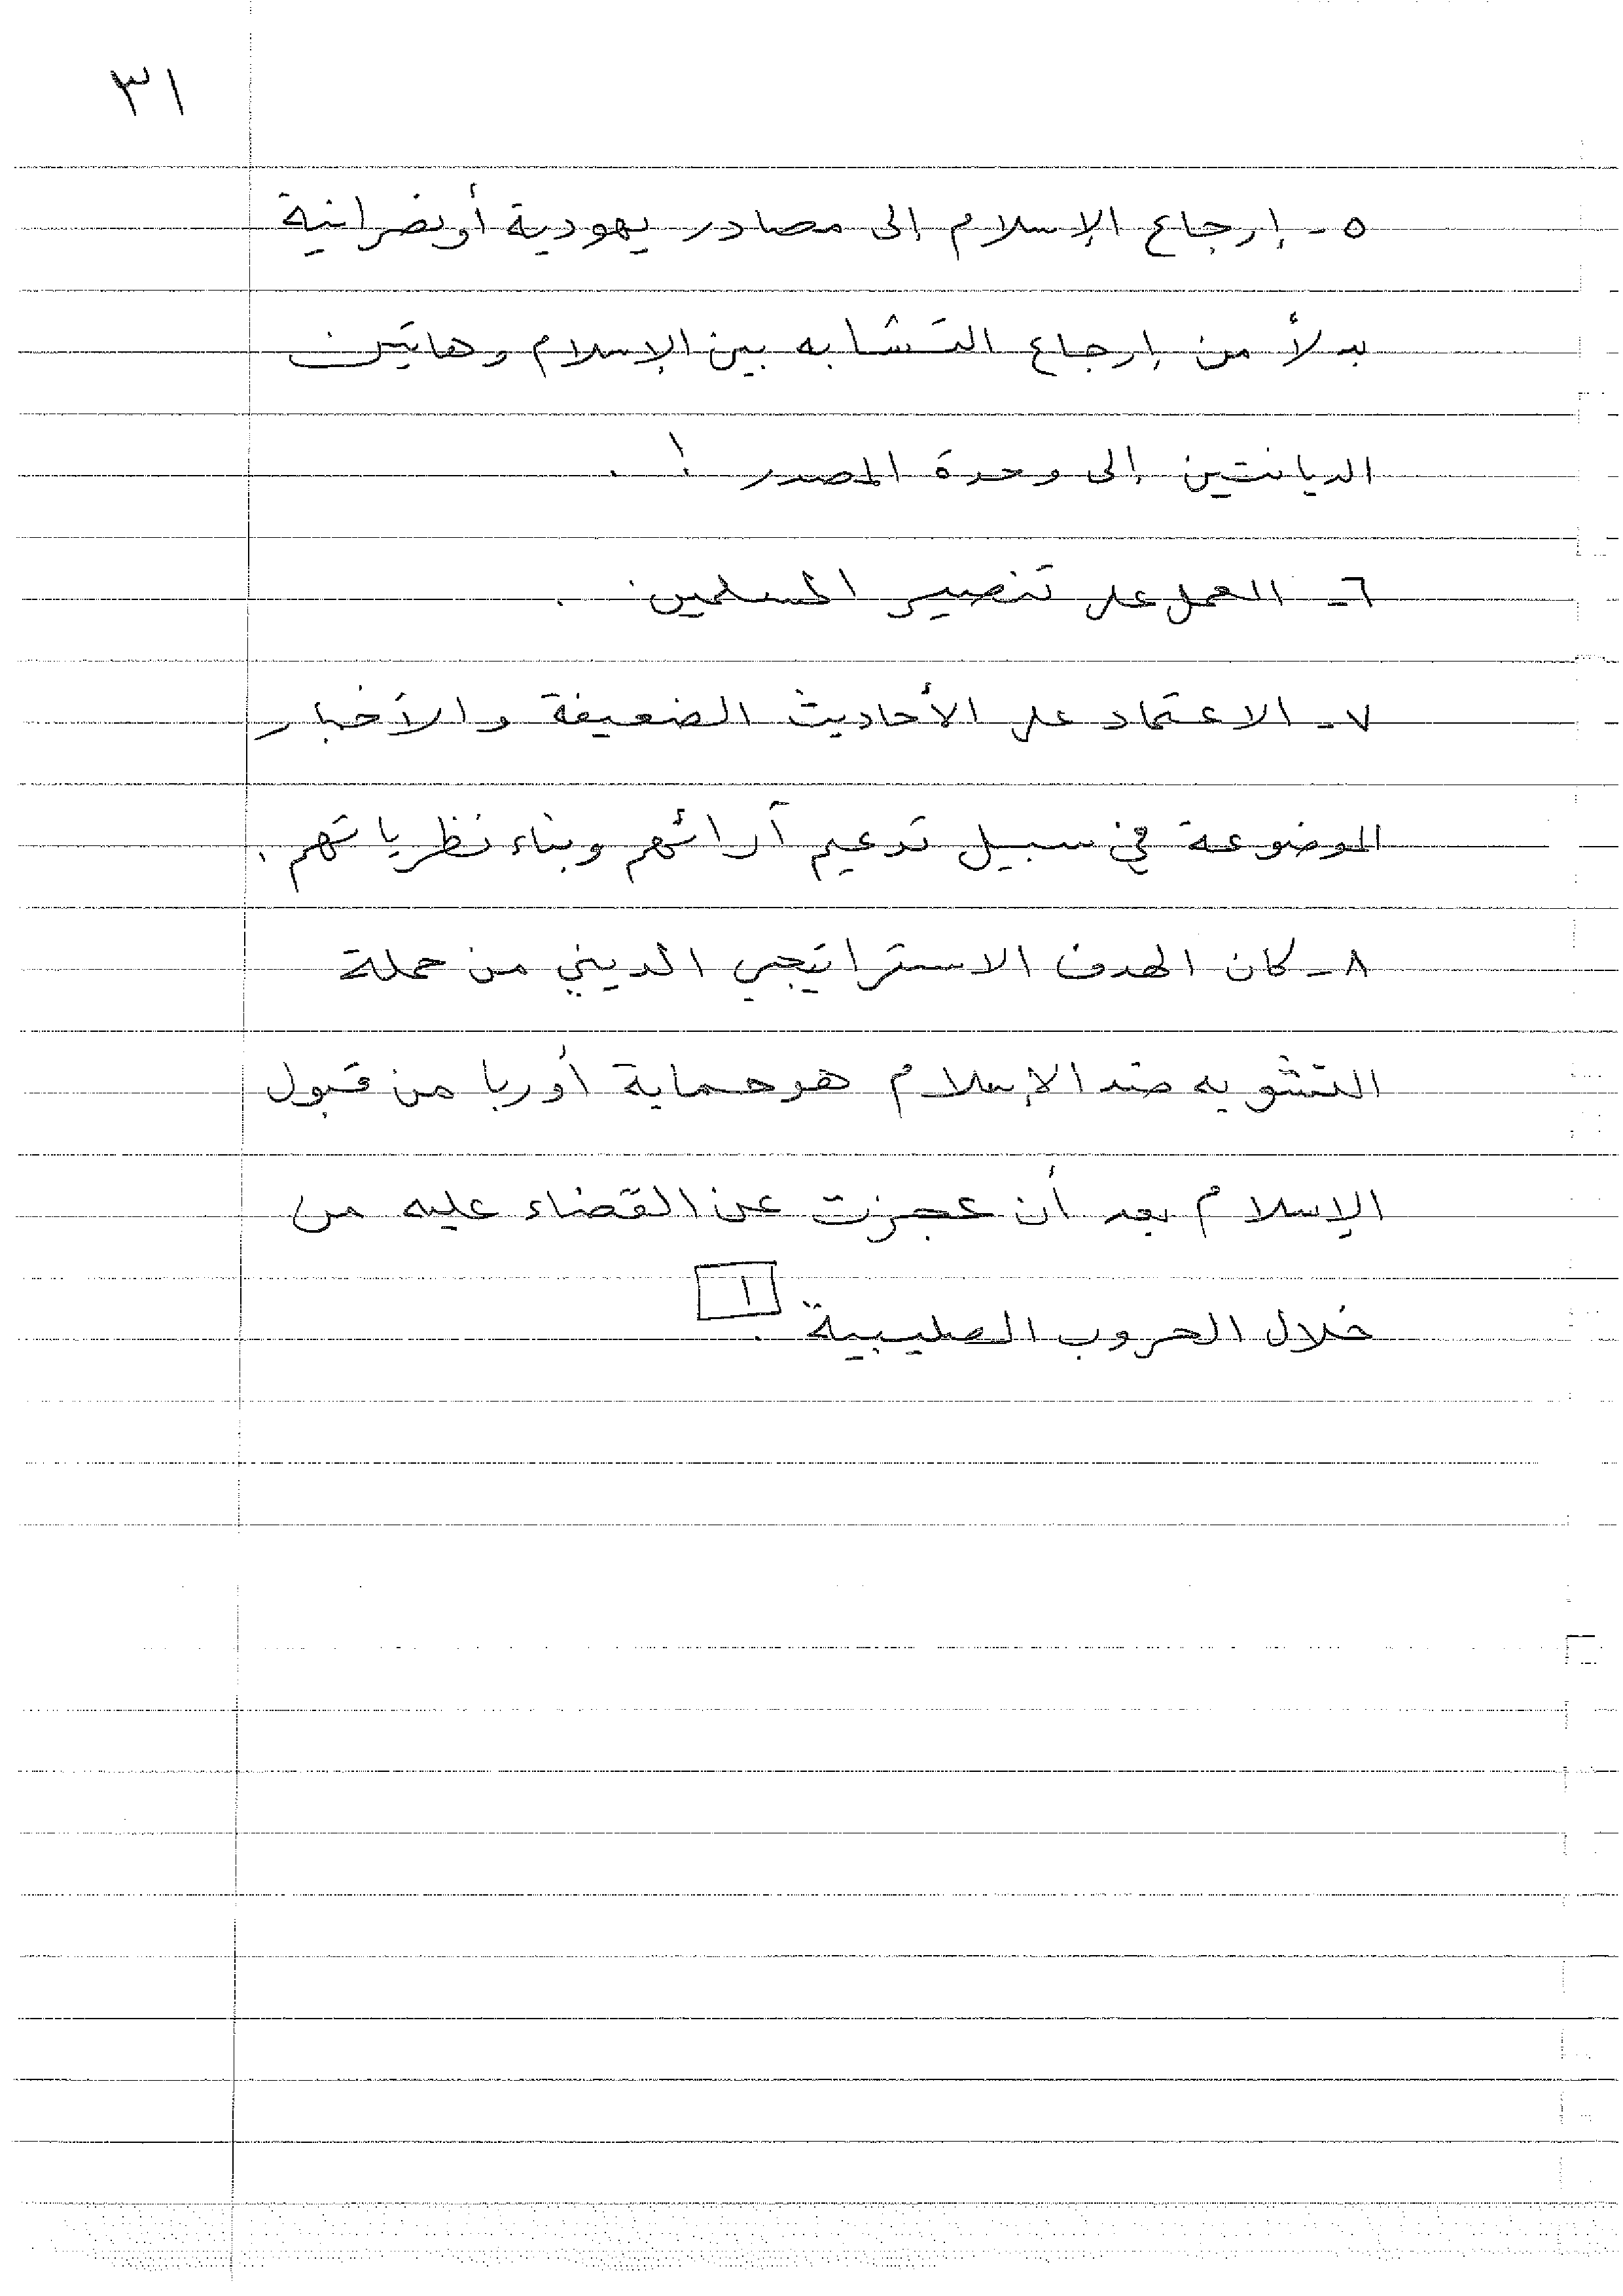 ٣١
٥ - إرجاع الإسلام إلى مصادر يهودية أو نصرانية
بدلاً من إرجاع التشابه بين الإسلام وهاتين
الديانتين إلى وحدة المصدر ! .
٦ - العمل على تنصير المسلمين .
٧ - الاعتماد على الأحاديث الضعيفة والأخبار
الموضوعة في سبيل تدعيم آرائهم وبناء نظرياتهم .
٨ - كان الهدف الاستراتيجي الديني من حملة
التشويه ضد الإسلام هو حماية أوربا من قبول
الإسلام بعد أن عجزت عن القضاء عليه من
خلال الحروب الصليبية . ١